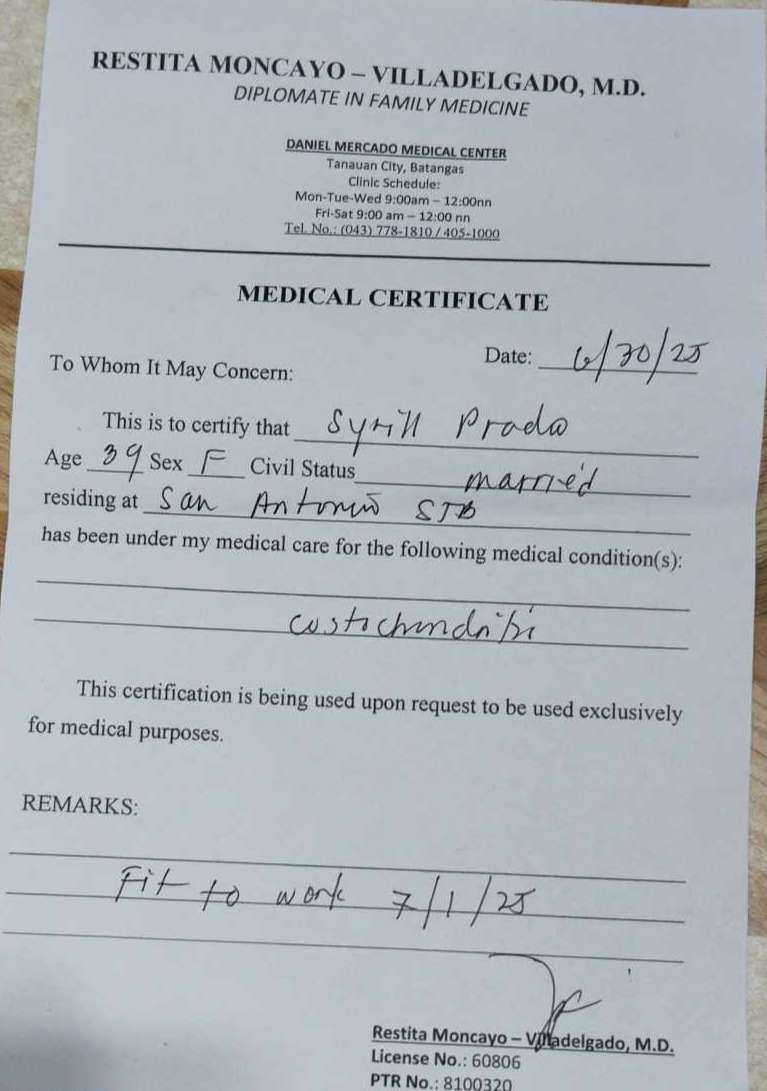 RESTITA MONCAYO – VILLADELGADO, M.D.
DIPLOMATE IN FAMILY MEDICINE
DANIEL MERCADO MEDICAL CENTER
Tanauan City, Batangas
Clinic Schedule:
Mon-Tue-Wed 9:00am – 12:00nn
Fri-Sat 9:00 am – 12:00 nn
Tel. No.: (043) 778-1810 / 405-1000
MEDICAL CERTIFICATE
Date: 6/30/25
To Whom It May Concern:
This is to certify that Syrill Prado
Age 39 Sex F Civil Status married
residing at San Antonio STB
has been under my medical care for the following medical condition(s):
costochondritis
This certification is being used upon request to be used exclusively
for medical purposes.
REMARKS:
Fit to work 7/1/25
Restita Moncayo – Villadelgado, M.D.
License No.: 60806
PTR No.: 8100320